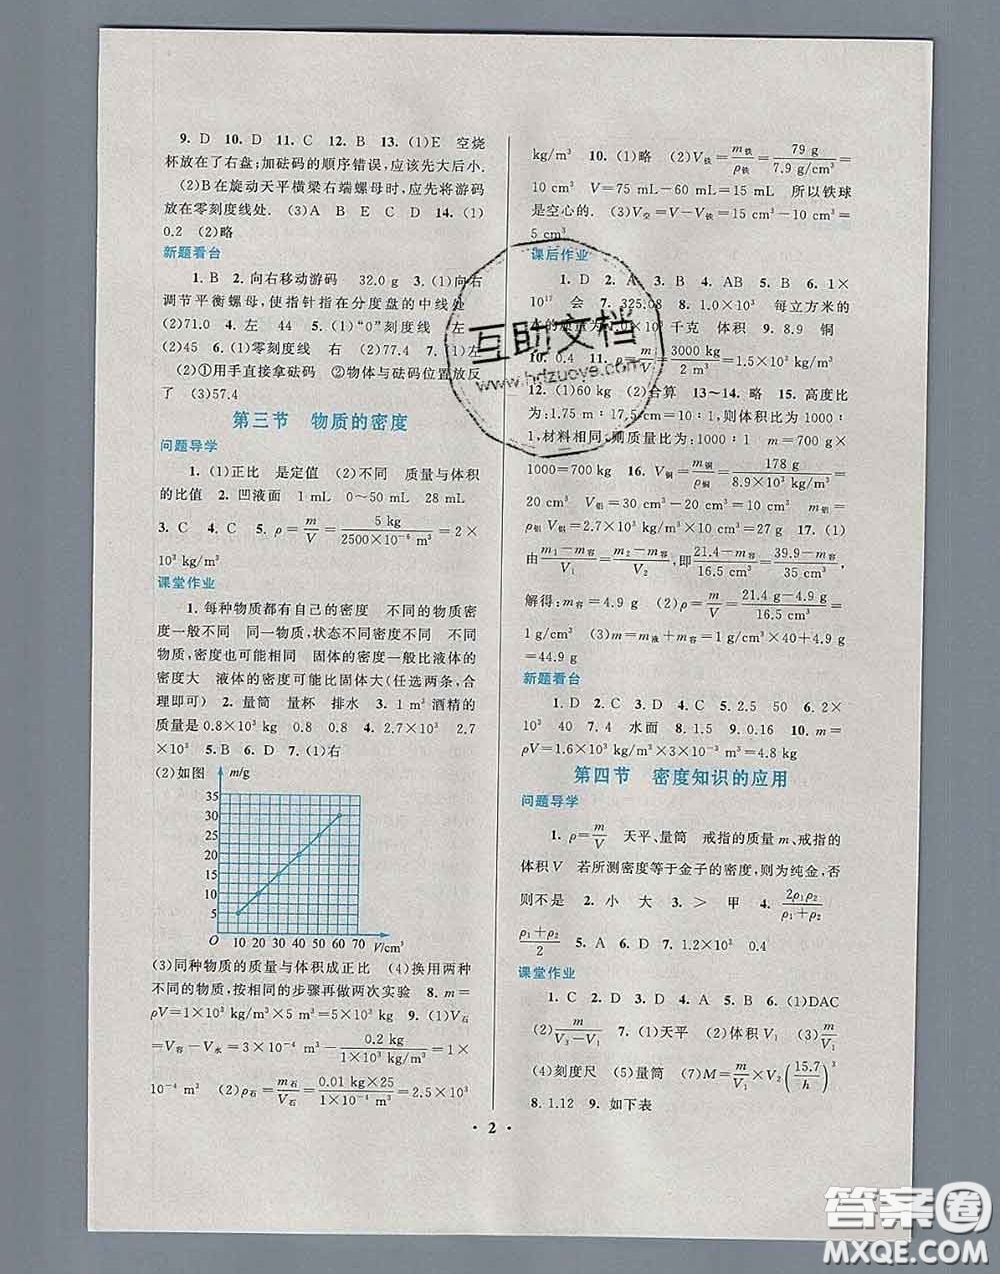 9. D 10. D 11. C 12. B 13. (1)E 空烧
杯放在了右盘;加砝码的顺序错误,应该先大后小.
(2)B 在旋动天平横梁右端螺母时,应先将游码
放在零刻度线处. (3)A B E C D 14. (1)
0.2 (2)略
新题看台
1. B 2. 向右移动游码 32.0 g 3. (1)向右
调节平衡螺母,使指针指在分度盘的中线处
(2)71.0 4. 左 44 5. (1)“0”刻度线 左
(2)45 6. (1)零刻度线 右 (2)77.4 7. (1)左
(2)①用手直接拿砝码 ②物体与砝码位置放反
了 (3)57.4
第三节 物质的密度
问题导学
1. (1)正比 是定值 (2)不同 质量与体积
的比值 2. 凹液面 1 mL 0~50 mL 28 mL
3. C 4. C 5. ρ=m/V=5 kg/(2500×10⁻⁶ m³)=2×
10³ kg/m³
课堂作业
1. 每种物质都有自己的密度 不同的物质密
度一般不同 同一物质,状态不同密度不同 不同
物质,密度也可能相同 固体的密度一般比液体的
密度大 液体的密度可能比固体大(任选两条,合
理即可) 2. 量筒 量杯 排水 3. 1 m³ 酒精的
质量是0.8×10³ kg 0.8 0.8 4. 2.7 2.7×
10³ 5. B 6. D 7. (1)右
(2)如图
m/g
35
30
25
20
15
10
5
O 10 20 30 40 50 60 70 V/cm³
(3)同种物质的质量与体积成正比 (4)换用两种
不同的物质,按相同的步骤再做两次实验 8. m=
ρV=1×10³ kg/m³×5 m³ 9. (1)V石
=V容-V水=3×10⁻⁴ m³-0.2 kg/(1×10³ kg/m³)=1×
10⁻⁴ m³ (2)ρ石=m石/V石=(0.01 kg×25)/(1×10⁻⁴ m³)=2.5×10³
kg/m³ 10. (1)略 (2)V铁=m铁/ρ铁=79 g/(7.9 g/cm³)=
10 cm³ V=75 mL-60 mL=15 mL 所以铁球
是空心的. (3)V空=V-V铁=15 cm³-10 cm³=
5 cm³
课后作业
1. D 2. A 3. B 4. AB 5. B 6. 1×
10¹⁷ 会 7. 325.08 8. 1.0×10³ 每立方米的
水的质量为1.0×10³千克 体积 9. 8.9 铜
10. 0.4 11. ρ=m/V=3000 kg/=1.5×10³ kg/m³
12. (1)60 kg (2)合算 13~14. 略 15. 高度比
为:1.75 m∶17.5 cm=10∶1,则体积比为:1000
∶1,材料相同;则质量比为:1000∶1 m=0.7 kg×
1000=700 kg 16. V铜=m铜/ρ铜=178 g/(8.9×10³ kg/m³)=
20 cm³ V铝=30 cm³-20 cm³=10 cm³ m铝=
ρ铝V铝=2.7×10³ kg/m³×10 cm³=27 g 17. (1)
由(m₁-m容)/V₁=(m₂-m容)/V₂,即(21.4-m容)/16.5 cm³=(39.9-m容)/35 cm³,
解得:m容=4.9 g (2)ρ=m/V=(21.4 g-4.9 g)/16.5 cm³=
1 g/cm³ (3)m=m液+m容=1 g/cm³×40+4.9 g
=44.9 g
新题看台
1. D 2. C 3. D 4. C 5. 2.5 50 6. 2×
10³ 40 7. 4 水面 8. 1.5 9. 0.16 10. m=
ρV=1.6×10³ kg/m³×3×10⁻³ m³=4.8 kg
第四节 密度知识的应用
问题导学
1. ρ=m/V 天平、量筒 戒指的质量m、戒指的
体积V 若所测密度等于金子的密度,则为纯金,否
则不是 2. 小 大 3. > 甲 4. 2ρ₁ρ₂/(ρ₁+ρ₂)
(ρ₁+ρ₂)/2 5. A 6. D 7. 1.2×10³ 0.4
课堂作业
1. C 2. D 3. D 4. A 5. B 6. (1)DAC
(2)m/(V₃-V₁) 7. (1)天平 (2)体积V₁ (3)m/V₁
(4)刻度尺 (5)量筒 (7)M=m/V₁×V₂(15.7/h)³
8. 1.12 9. 如下表
· 2 ·
互助文档
www.hdzuoye.com
答案圈
MXQE.COM